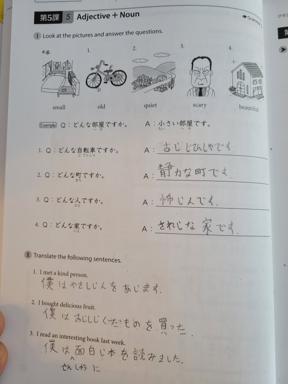 第5課 5 Adjective + Noun
I Look at the pictures and answer the questions.
e.g. 1. 2. 3. 4.
small old quiet scary beautiful
Example Q：どんな部屋ですか。 A：小さい部屋です。
1. Q：どんな自転車ですか。 A：
2. Q：どんな町ですか。 A：静かな町です
3. Q：どんな人ですか。 A：
4. Q：どんな家ですか。 A：きれいな家です
II Translate the following sentences.
1. I met a kind person.
僕はやさしじんをあじます.
2. I bought delicious fruit.
僕はおじしくだものを買った.
3. I read an interesting book last week.
僕は面白じ本を読みました.